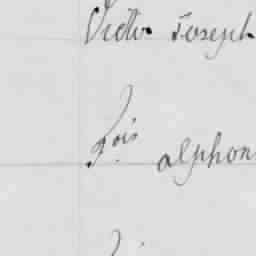 Victor Joseph
fois alphon